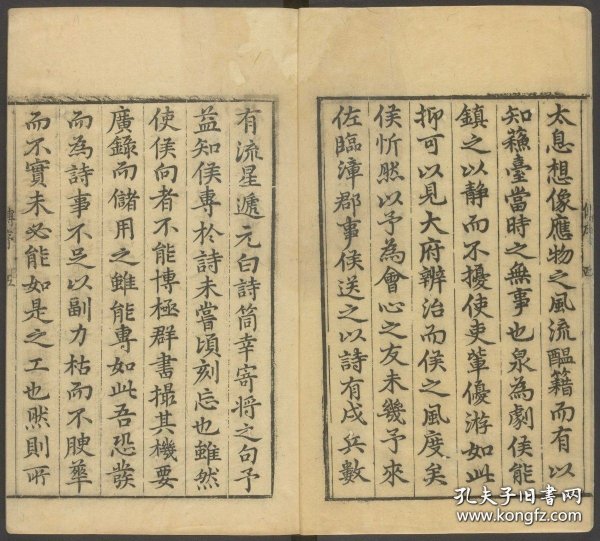 太息想像應物之風流醞籍而有以
知蘓臺當時之無事也泉為劇侯能
鎮之以静而不擾使吏軰優游如此
抑可以見大府辨治而侯之風度矣
侯忻然以予為會心之友未幾予來
佐臨漳郡事侯送之以詩有戍兵數
有流星遞元白詩筒幸寄將之句予
益知侯專於詩未嘗頃刻忘也雖然
使侯向者不能博極群書撮其機要
廣錄而儲用之雖能專如此吾恐發
而為詩事不足以副力枯而不腴華
而不實未必能如是之工也然則所
五
孔夫子旧书网
www.kongfz.com